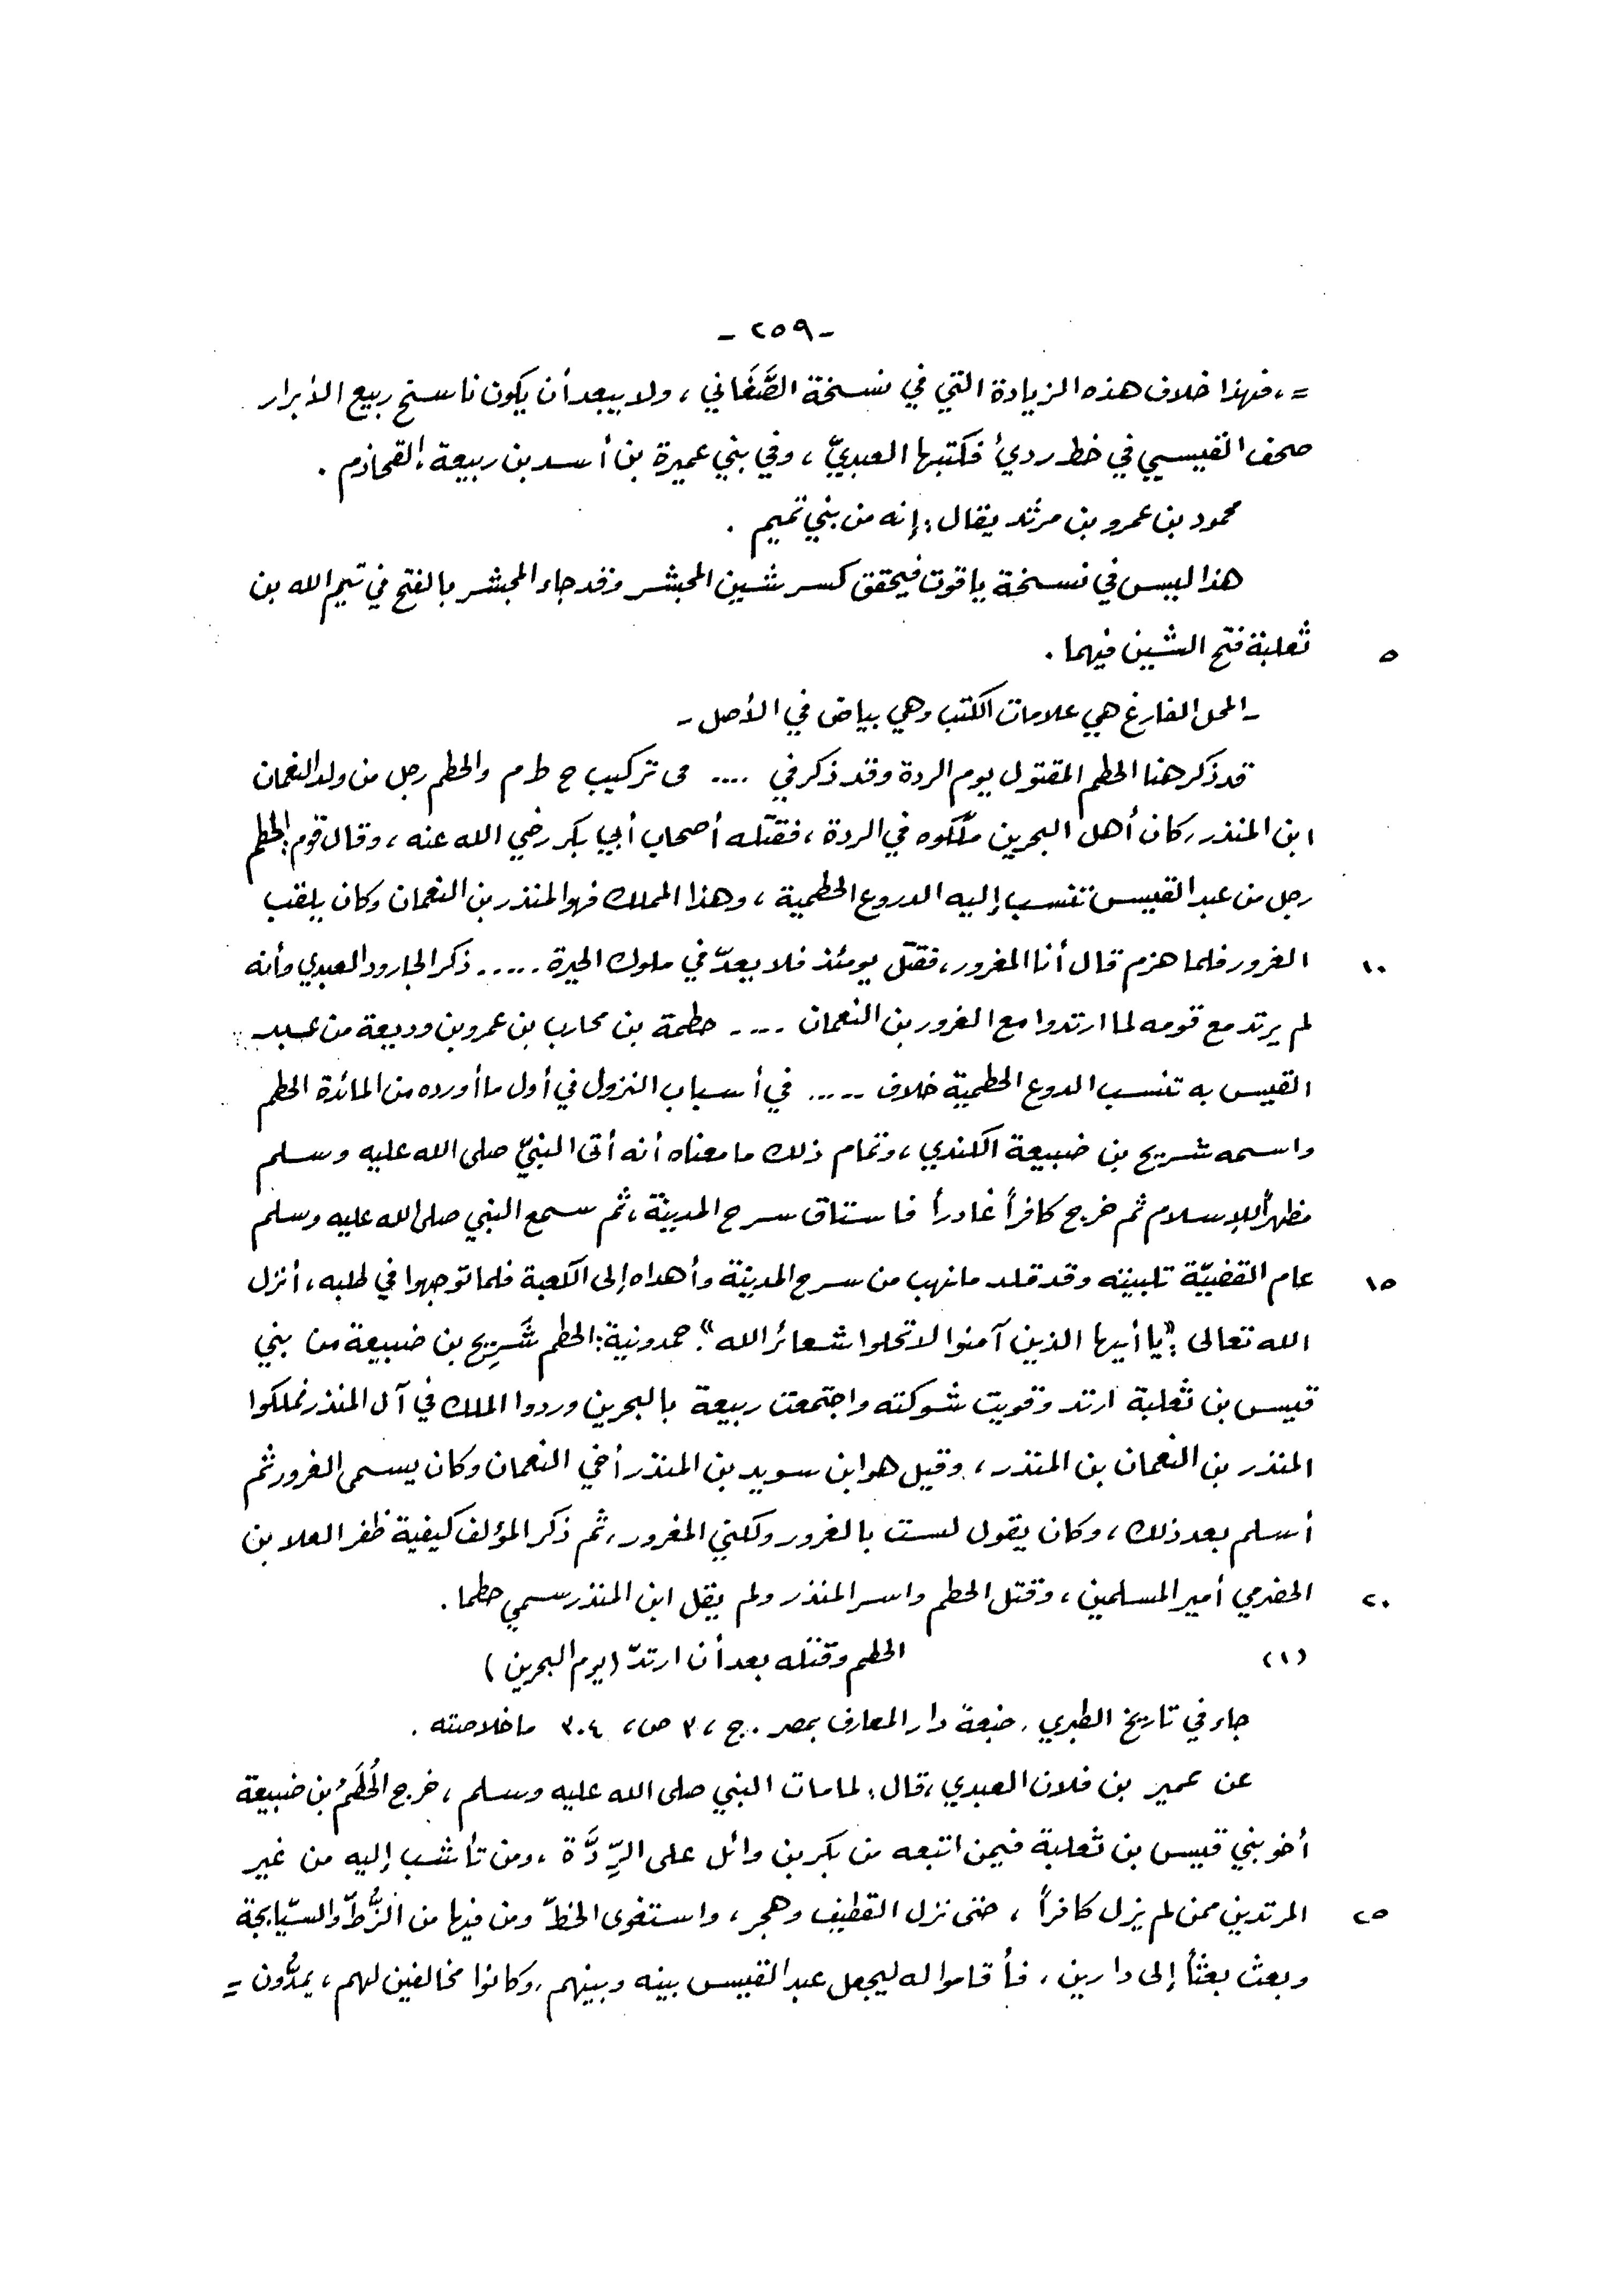 - ٢٥٩ -
= ، فهذا خلاف هذه الزيادة التي في نسخة الصَّغَاني ، ولا يبعد أن يكون ناسخ ربيع الأبرار
صحف القيسي في خط رديْ فكتبها العبديّ ، وفي بني عميرة بن أسد بن ربيعة ، القحاذم .
محمود بن عمرو بن مرثد يقال : إنه من بني تميم .
هذا ليس في نسخة ياقوت فيحقق كسر شين المجشر وقد جاء المجشر بالفتح في تيم الله بن
٥ ثعلبة فتح الشين فيهما .
- المحل الفارغ هي علامات الكتب وهي بياض في الأصل -
قد ذكر هنا الحطم المقتول يوم الردة وقد ذكر في .... مى تركيب ح ط م والحطم رجل من ولد النعمان
ابن المنذر ، كان أهل البحرين ملّكوه في الردة ، فقتله أصحاب أبي بكر رضي الله عنه ، وقال قوم : الحطم
رجل من عبد القيس تنسب إليه الدروع الحطمية ، وهذا المملك فهو المنذر بن النعمان وكان يلقب
١٠ الغرور فلما هزم قال أنا المغرور ، فقتل يومئذ فلا يعدّ في ملوك الحيرة ..... ذكر الجارود العبدي وأنه
لم يرتد مع قومه لما ارتدوا مع الغرور بن النعمان .... حطمة بن محارب بن عمرو بن وديعة من عبد
القيس به تنسب الدوع الحطمية خلاف ..... في أسباب النزول في أول ما أورده من المائدة الحطم
واسمه شريح بن ضبيعة الكندي ، وتمام ذلك ما معناه أنه أتى النبيّ صلى الله عليه وسلم
مظهراً للإسلام ثم خرج كافراً غادراً فاستاق سرح المدينة ، ثم سمع النبي صلى الله عليه وسلم
١٥ عام القضيّة تلبيته وقد قلد ما نهب من سرح المدينة وأهداه إلى الكعبة فلما توجهوا في طلبه ، أنزل
الله تعالى : «يا أيها الذين آمنوا لا تحلوا شعائر الله» . حمدونية : الحطم شُرَيح بن ضبيعة من بني
قيس بن ثعلبة ارتد وقويت شوكته واجتمعت ربيعة بالبحرين وردوا الملك في آل المنذر فملكوا
المنذر بن النعمان بن المنذر ، وقيل هو ابن سويد بن المنذر أخي النعمان وكان يسمى الغرور ثم
أسلم بعد ذلك ، وكان يقول لست بالغرور ولكني المغرور ، ثم ذكر المؤلف كيفية ظفر العلا بن
٢٠ الحضرمي أمير المسلمين ، وقتل الحطم واسر المنذر ولم يقل ابن المنذر سمي حطما .
(١) الحطم وقتله بعد أن ارتدّ (يوم البحرين)
جاء في تاريخ الطبري . ضبعة دار المعارف بمصر . ج ، ٣ ص ، ٣٠٤ ما خلاصته .
عن عمير بن فلان العبدي ، قال : لما مات النبي صلى الله عليه وسلم ، خرج الحُطَمُ بن ضبيعة
أخو بني قيس بن ثعلبة فيمن اتبعه من بكر بن وائل على الرِّدَّة ، ومن تأشب إليه من غير
٢٥ المرتدين ممن لم يزل كافراً ، حتى نزل القطيف وهجر ، واستغوى الخطّ ومن فيها من الزُّطّ والسّيابجة
وبعث بعثاً إلى دارين ، فأقاموا له ليجعل عبد القيس بينه وبينهم ، وكانوا مخالفين لهم ، يمدُّون =